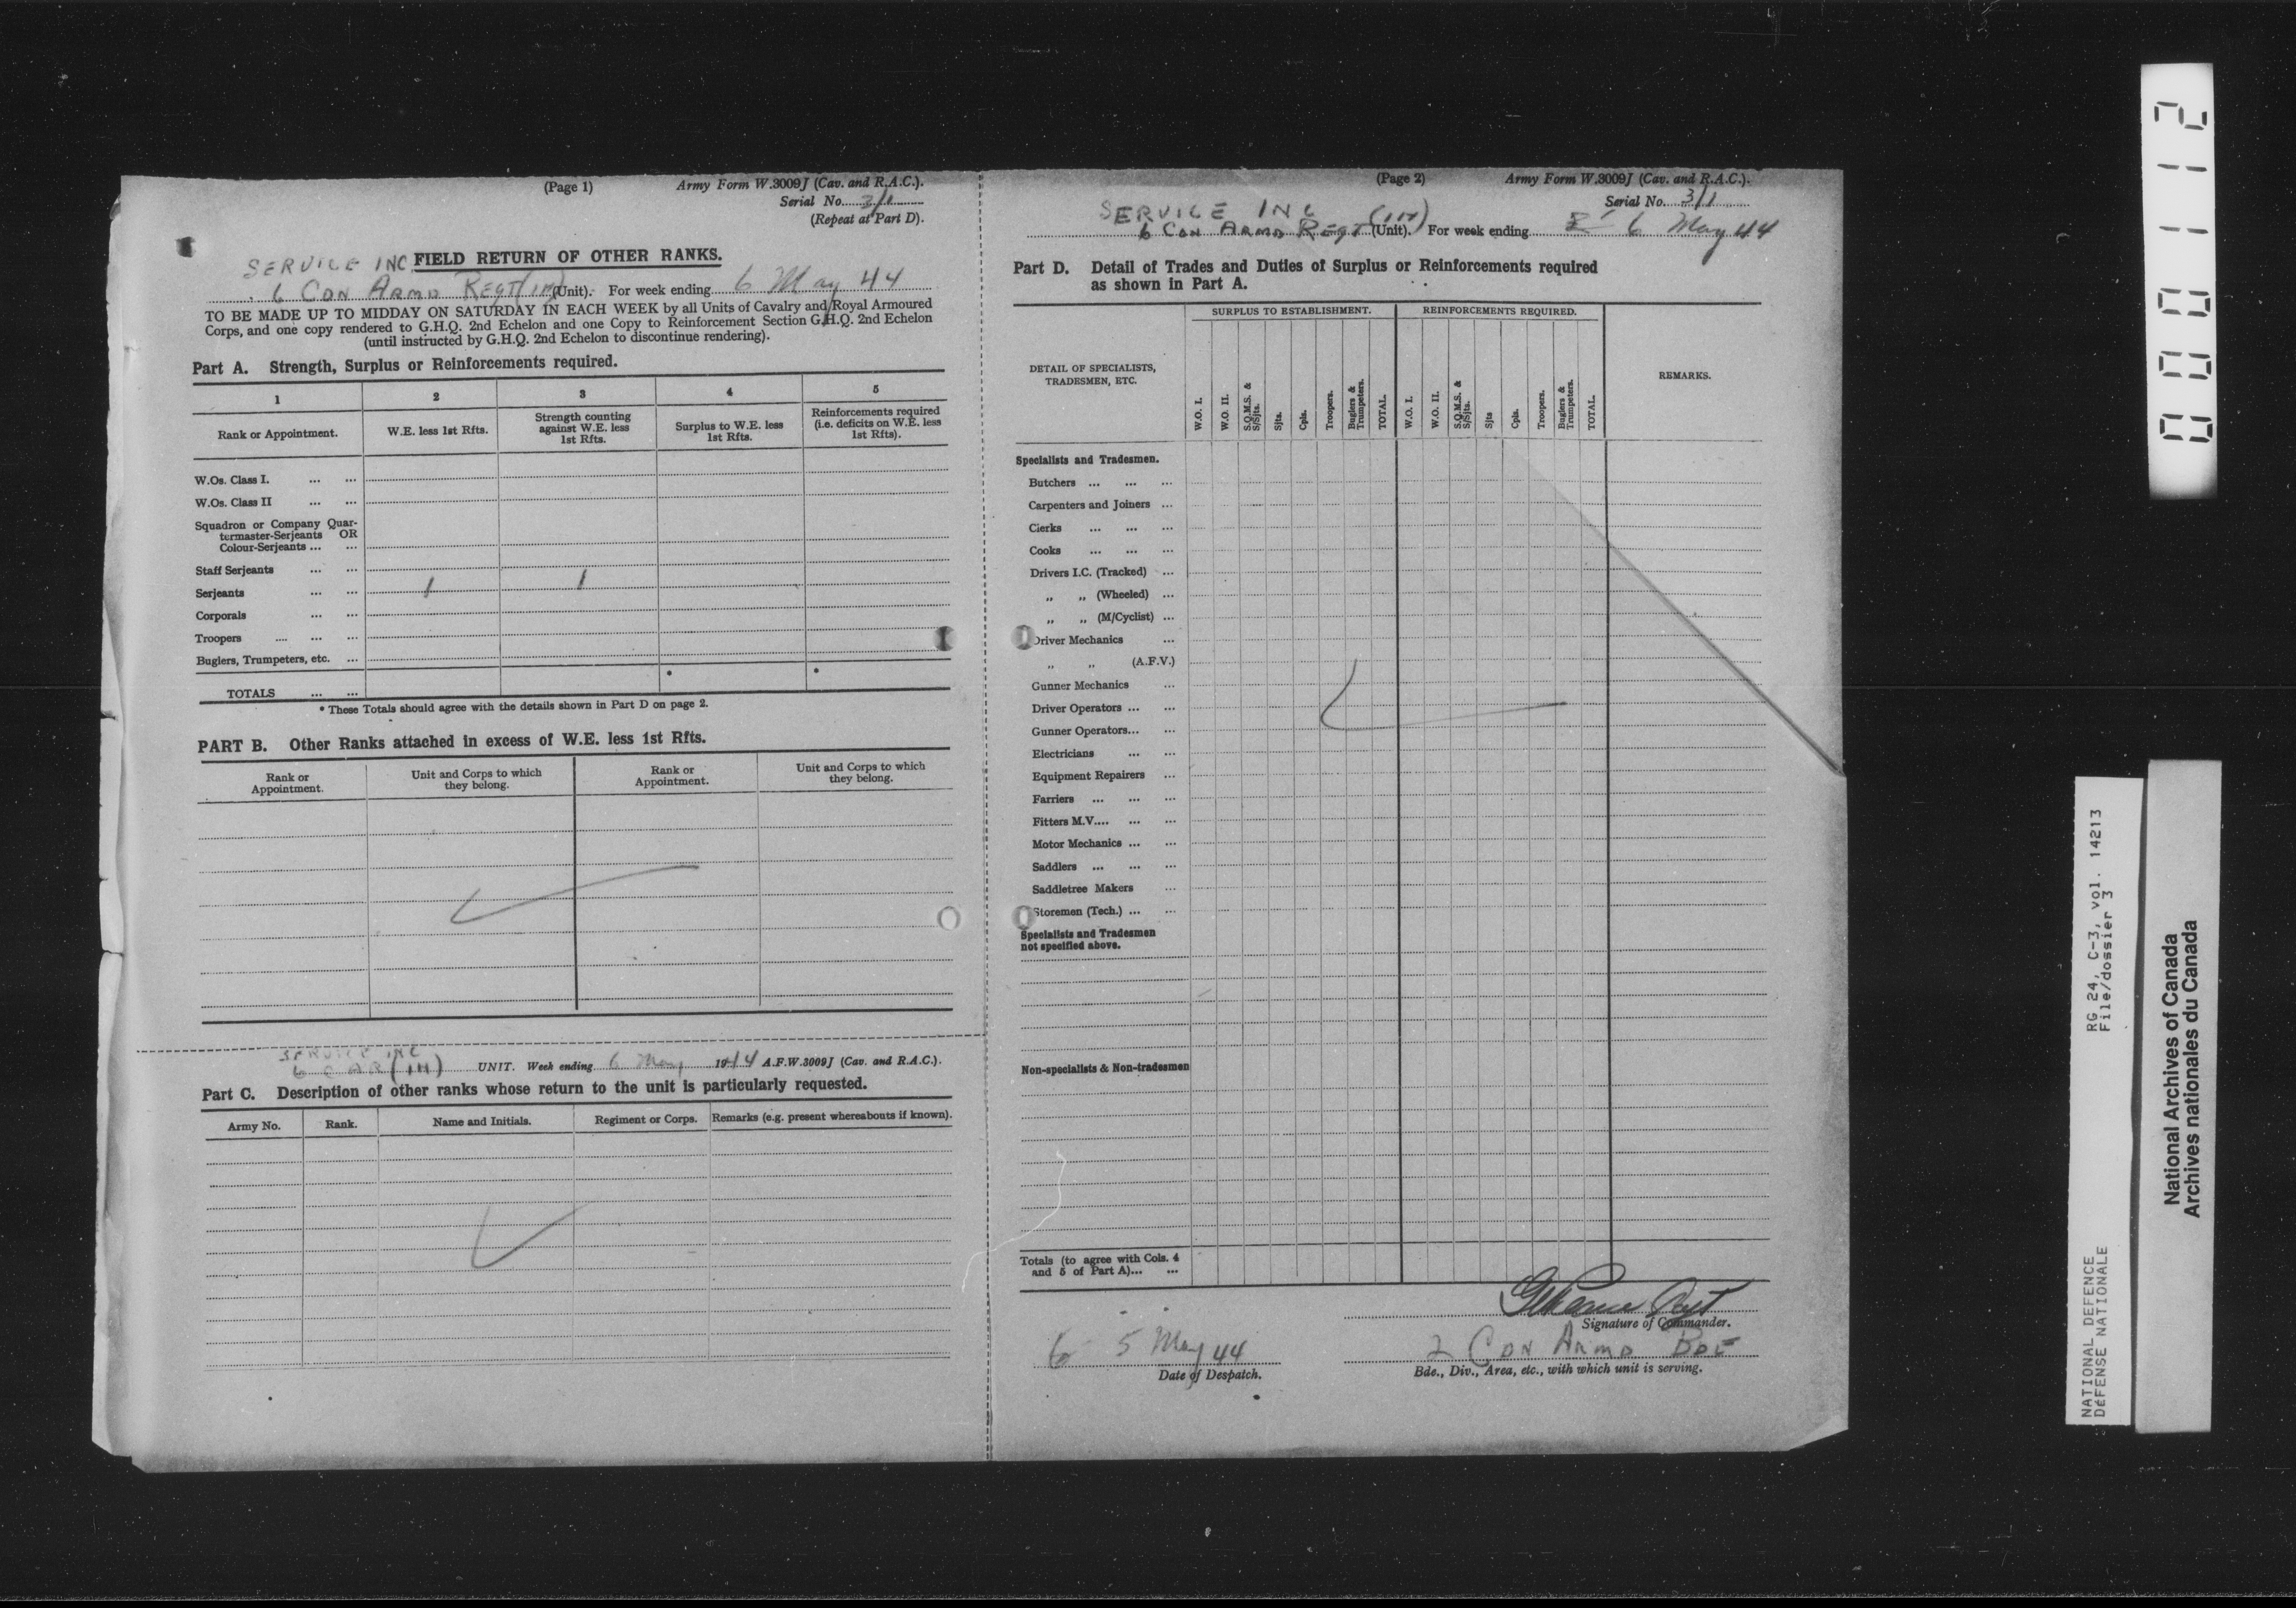 (Page 1)
Army Form W.3009J (Cav. and R.A.C.).
Serial No. 3/1
(Repeat at Part D).
SERVICE INC FIELD RETURN OF OTHER RANKS.
6 CDN ARMD REGT (1H) (Unit). For week ending 6 May 44
TO BE MADE UP TO MIDDAY ON SATURDAY IN EACH WEEK by all Units of Cavalry and Royal Armoured
Corps, and one copy rendered to G.H.Q. 2nd Echelon and one Copy to Reinforcement Section G.H.Q. 2nd Echelon
(until instructed by G.H.Q. 2nd Echelon to discontinue rendering).
Part A. Strength, Surplus or Reinforcements required.
1 2 3 4 5
Rank or Appointment. W.E. less 1st Rfts. Strength counting against W.E. less 1st Rfts. Surplus to W.E. less 1st Rfts. Reinforcements required (i.e. deficits on W.E. less 1st Rfts).
W.Os. Class I. ... ...
W.Os. Class II ... ...
Squadron or Company Quar-
termaster-Serjeants OR
Colour-Serjeants ... ...
Staff Serjeants ... ...
Serjeants ... ... 1 1
Corporals ... ...
Troopers .... ... ...
Buglers, Trumpeters, etc. ...
TOTALS ... ... * *
* These Totals should agree with the details shown in Part D on page 2.
PART B. Other Ranks attached in excess of W.E. less 1st Rfts.
Rank or Appointment. Unit and Corps to which they belong. Rank or Appointment. Unit and Corps to which they belong.
SERVICE INC
6 CAR (1H) UNIT. Week ending 6 May 1944 A.F.W.3009J (Cav. and R.A.C.).
Part C. Description of other ranks whose return to the unit is particularly requested.
Army No. Rank. Name and Initials. Regiment or Corps. Remarks (e.g. present whereabouts if known).
(Page 2)
Army Form W.3009J (Cav. and R.A.C.).
Serial No. 3/1
SERVICE INC
6 CDN ARMD REGT (1H) (Unit). For week ending 6 May 44
Part D. Detail of Trades and Duties of Surplus or Reinforcements required
as shown in Part A.
SURPLUS TO ESTABLISHMENT. REINFORCEMENTS REQUIRED.
DETAIL OF SPECIALISTS,
TRADESMEN, ETC.
W.O. I. W.O. II. S.Q.M.S. & S/Sjts. Sjts. Cpls. Troopers. Buglers & Trumpeters. TOTAL. W.O. I. W.O. II. S.Q.M.S. & S/Sjts. Sjts Cpls. Troopers. Buglers & Trumpeters. TOTAL. REMARKS.
Specialists and Tradesmen.
Butchers ... ... ...
Carpenters and Joiners ...
Clerks ... ... ...
Cooks ... ... ...
Drivers I.C. (Tracked) ...
,, ,, (Wheeled) ...
,, ,, (M/Cyclist) ...
Driver Mechanics ...
,, ,, (A.F.V.)
Gunner Mechanics ...
Driver Operators ... ...
Gunner Operators... ...
Electricians ... ...
Equipment Repairers ...
Farriers ... ... ...
Fitters M.V.... ... ...
Motor Mechanics ... ...
Saddlers ... ... ...
Saddletree Makers ...
Storemen (Tech.) ... ...
Specialists and Tradesmen
not specified above.
Non-specialists & Non-tradesmen
Totals (to agree with Cols. 4
and 5 of Part A)... ...
Signature of Commander.
6 5 May 44
Date of Despatch.
2 CDN ARMD BDE
Bde., Div., Area, etc., with which unit is serving.
000112
RG 24, C-3, vol. 14213
File/dossier 3
NATIONAL DEFENCE
DÉFENSE NATIONALE
National Archives of Canada
Archives nationales du Canada